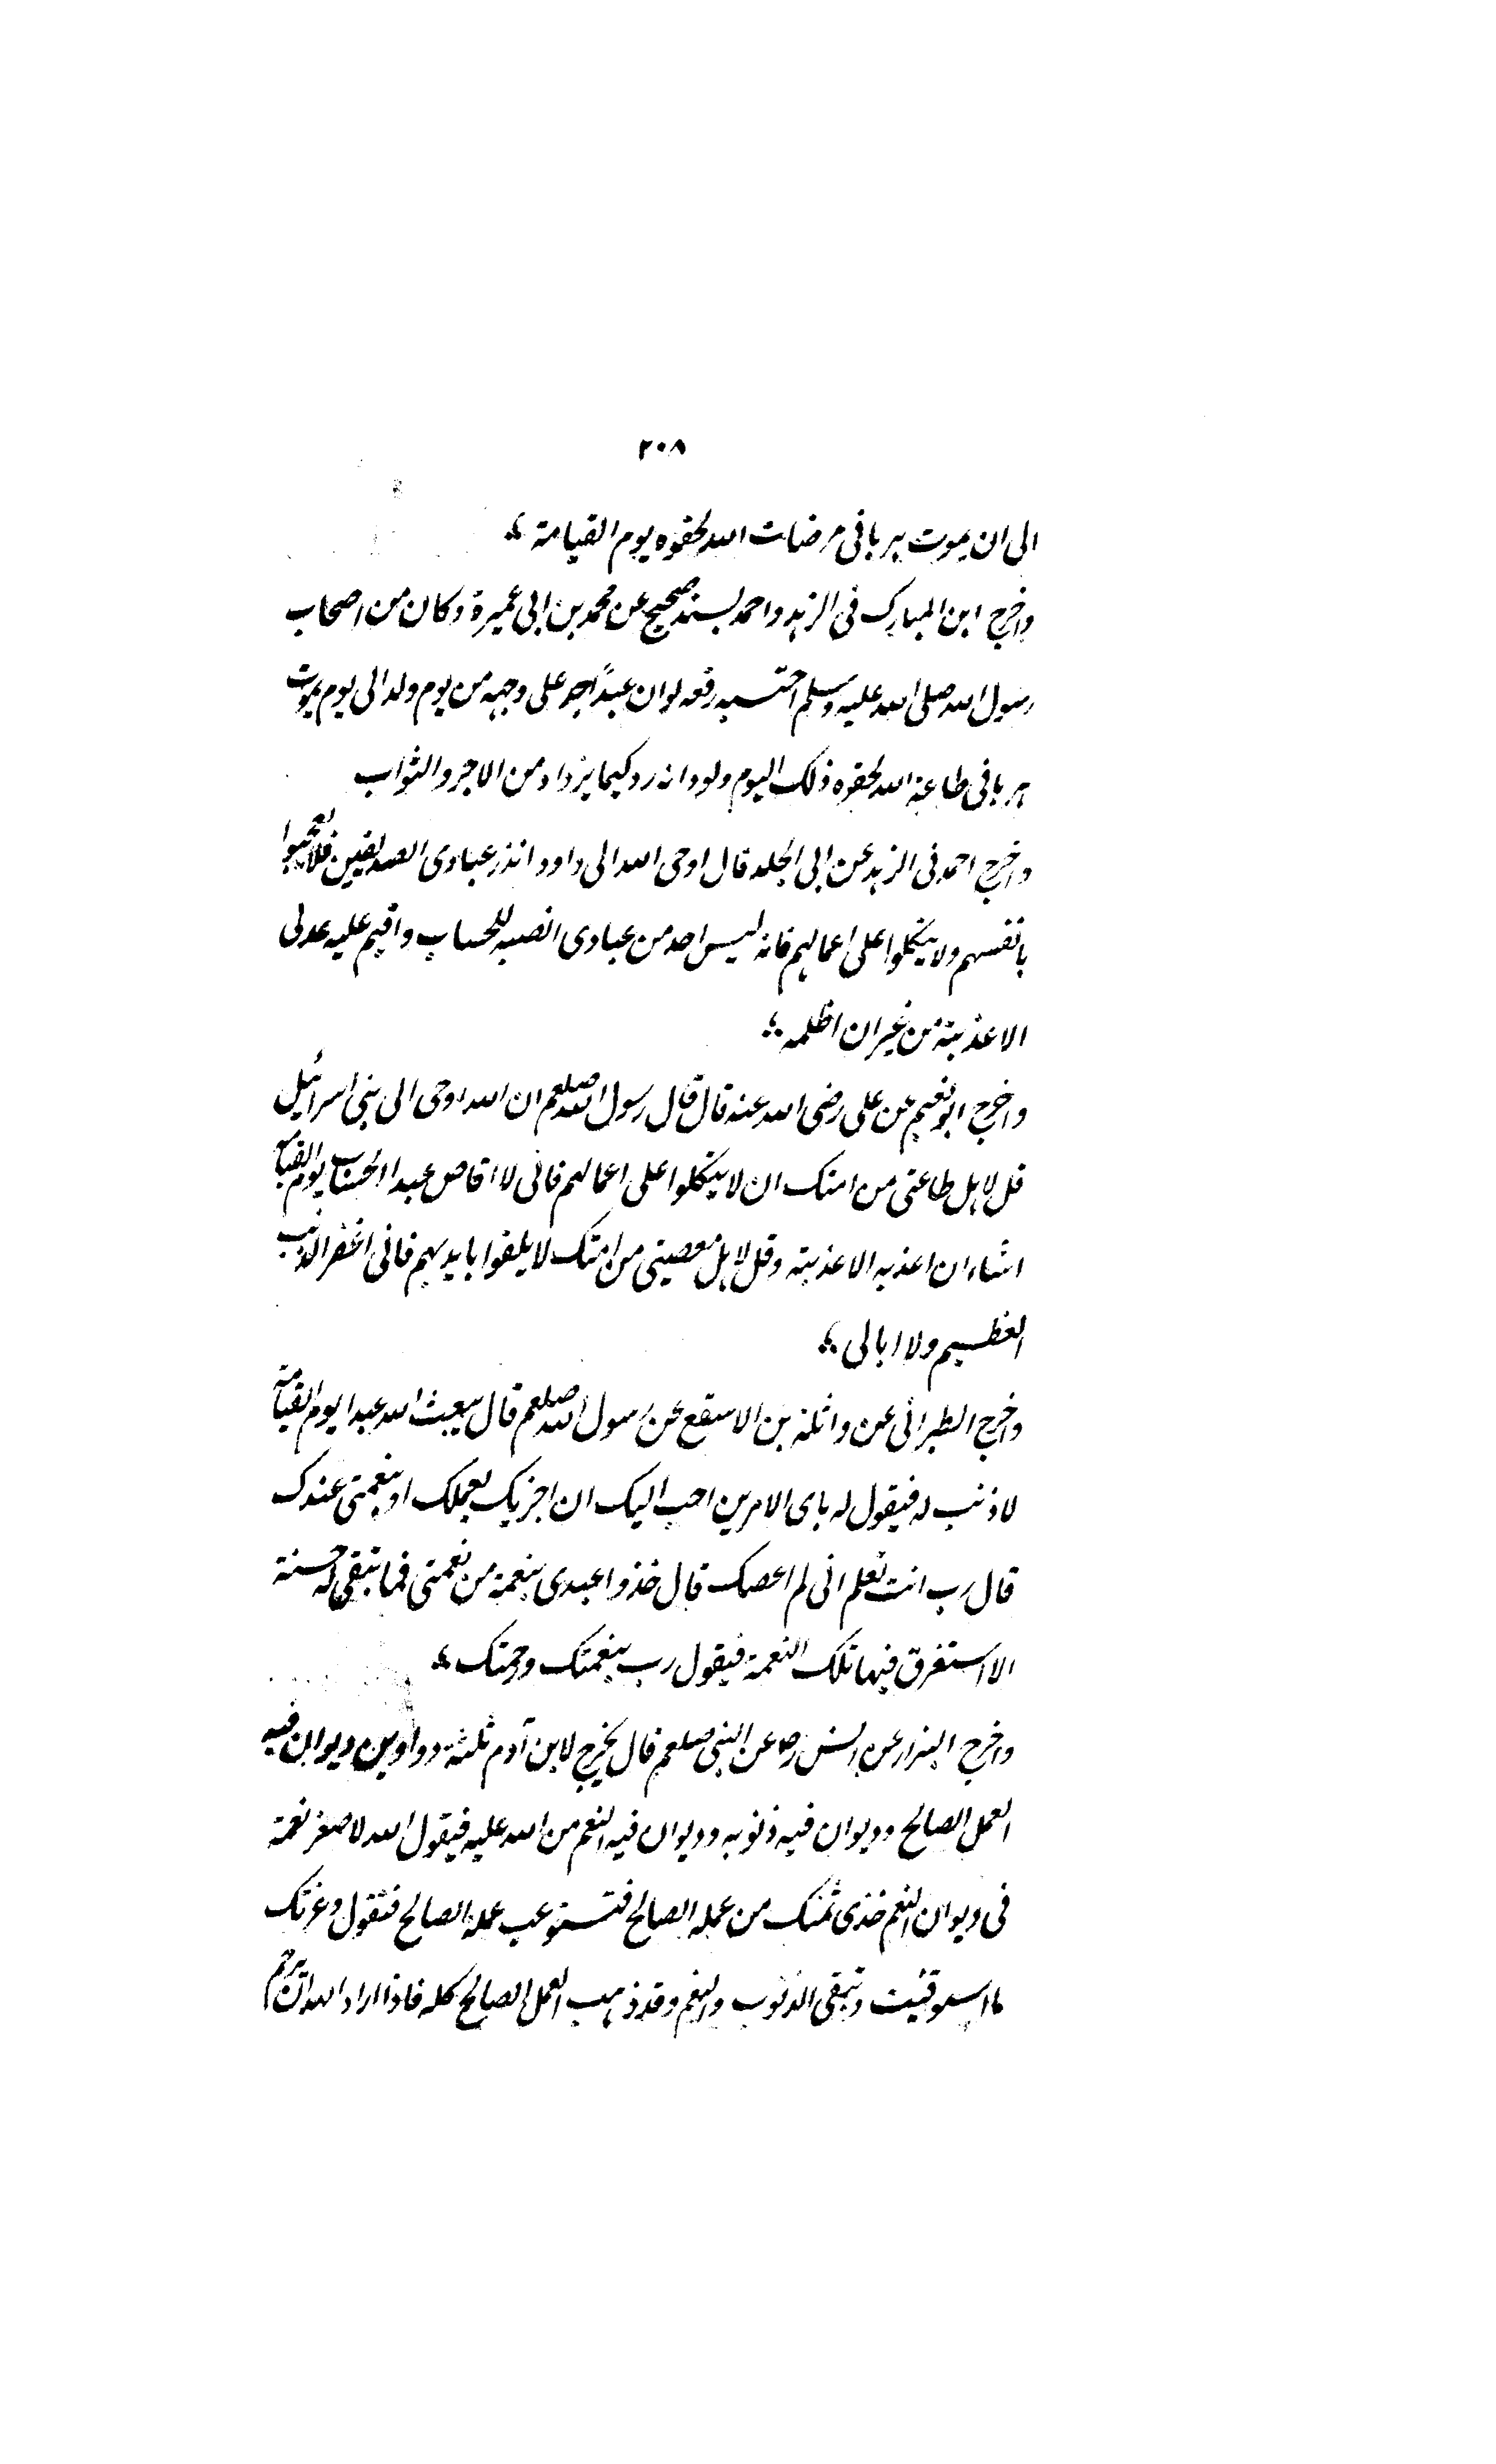 ۲۰۸
الی ان یموت ہرما فی مرضات اللہ لحقرہ یوم القیامۃ ؛
واخرج ابن المبارک فی الزہد واحمد بسند صحیح عن محمد بن ابی عمیرۃ وکان من اصحاب
رسول اللہ صلی اللہ علیہ وسلم احتسبہ رفعہ لو ان عبدًا خر علی وجہہ من یوم ولد الی یوم یموت
ہرما فی طاعۃ اللہ لحقرہ ذلک الیوم ولود انہ رد کیما یزداد من الاجر والثواب
واخرج احمد فی الزہد عن ابی الجلد قال اوحی اللہ الی داود انذر عبادی الصدیقین فلا یعجبوا
بانفسہم ولا یتکلوا علی اعمالہم فانہ لیس احد من عبادی انصبہ للحساب واقیم علیہ عدلی
الا عذبتہ من غیر ان اظلمہ ؛
واخرج ابو نعیم عن علی رضی اللہ عنہ قال قال رسول اللہ صلعم ان اللہ اوحی الی بنی اسرائیل
قل لاہل طاعتی من امتک ان لا یتکلوا علی اعمالہم فانی لا اقاص عبدا الحساب یوم القیامۃ
اشاء ان اعذبہ الا عذبتہ وقل لاہل معصیتی من امتک لا یلقوا بایدیہم فانی اغفر الذنب
العظیم ولا ابالی ؛
واخرج الطبرانی عن واثلۃ بن الاسقع عن رسول اللہ صلعم قال یبعث اللہ عبدا یوم القیامۃ
لا ذنب لہ فیقول لہ بای الامرین احب الیک ان اجزیک بعملک او بنعمتی عندک
قال رب انت تعلم انی لم اعصک قال خذوا عبدی بنعمۃ من نعمتی فما تبقی لہ حسنۃ
الا استغرق فیہا تلک النعمۃ فیقول رب بنعمتک ورحمتک ؛
واخرج البزار عن انس رض عن النبی صلعم قال یخرج لابن آدم ثلثۃ دواوین دیوان فیہ
العمل الصالح ودیوان فیہ ذنوبہ ودیوان فیہ النعم من اللہ علیہ فیقول اللہ لاصغر نعمۃ
فی دیوان النعم خذی ثمنک من عملہ الصالح فتستوعب عملہ الصالح فتقول وعزتک
ما استوفیت وتبقی الذنوب والنعم وقد ذہب العمل الصالح کلہ فاذا اراد اللہ ان یرحم